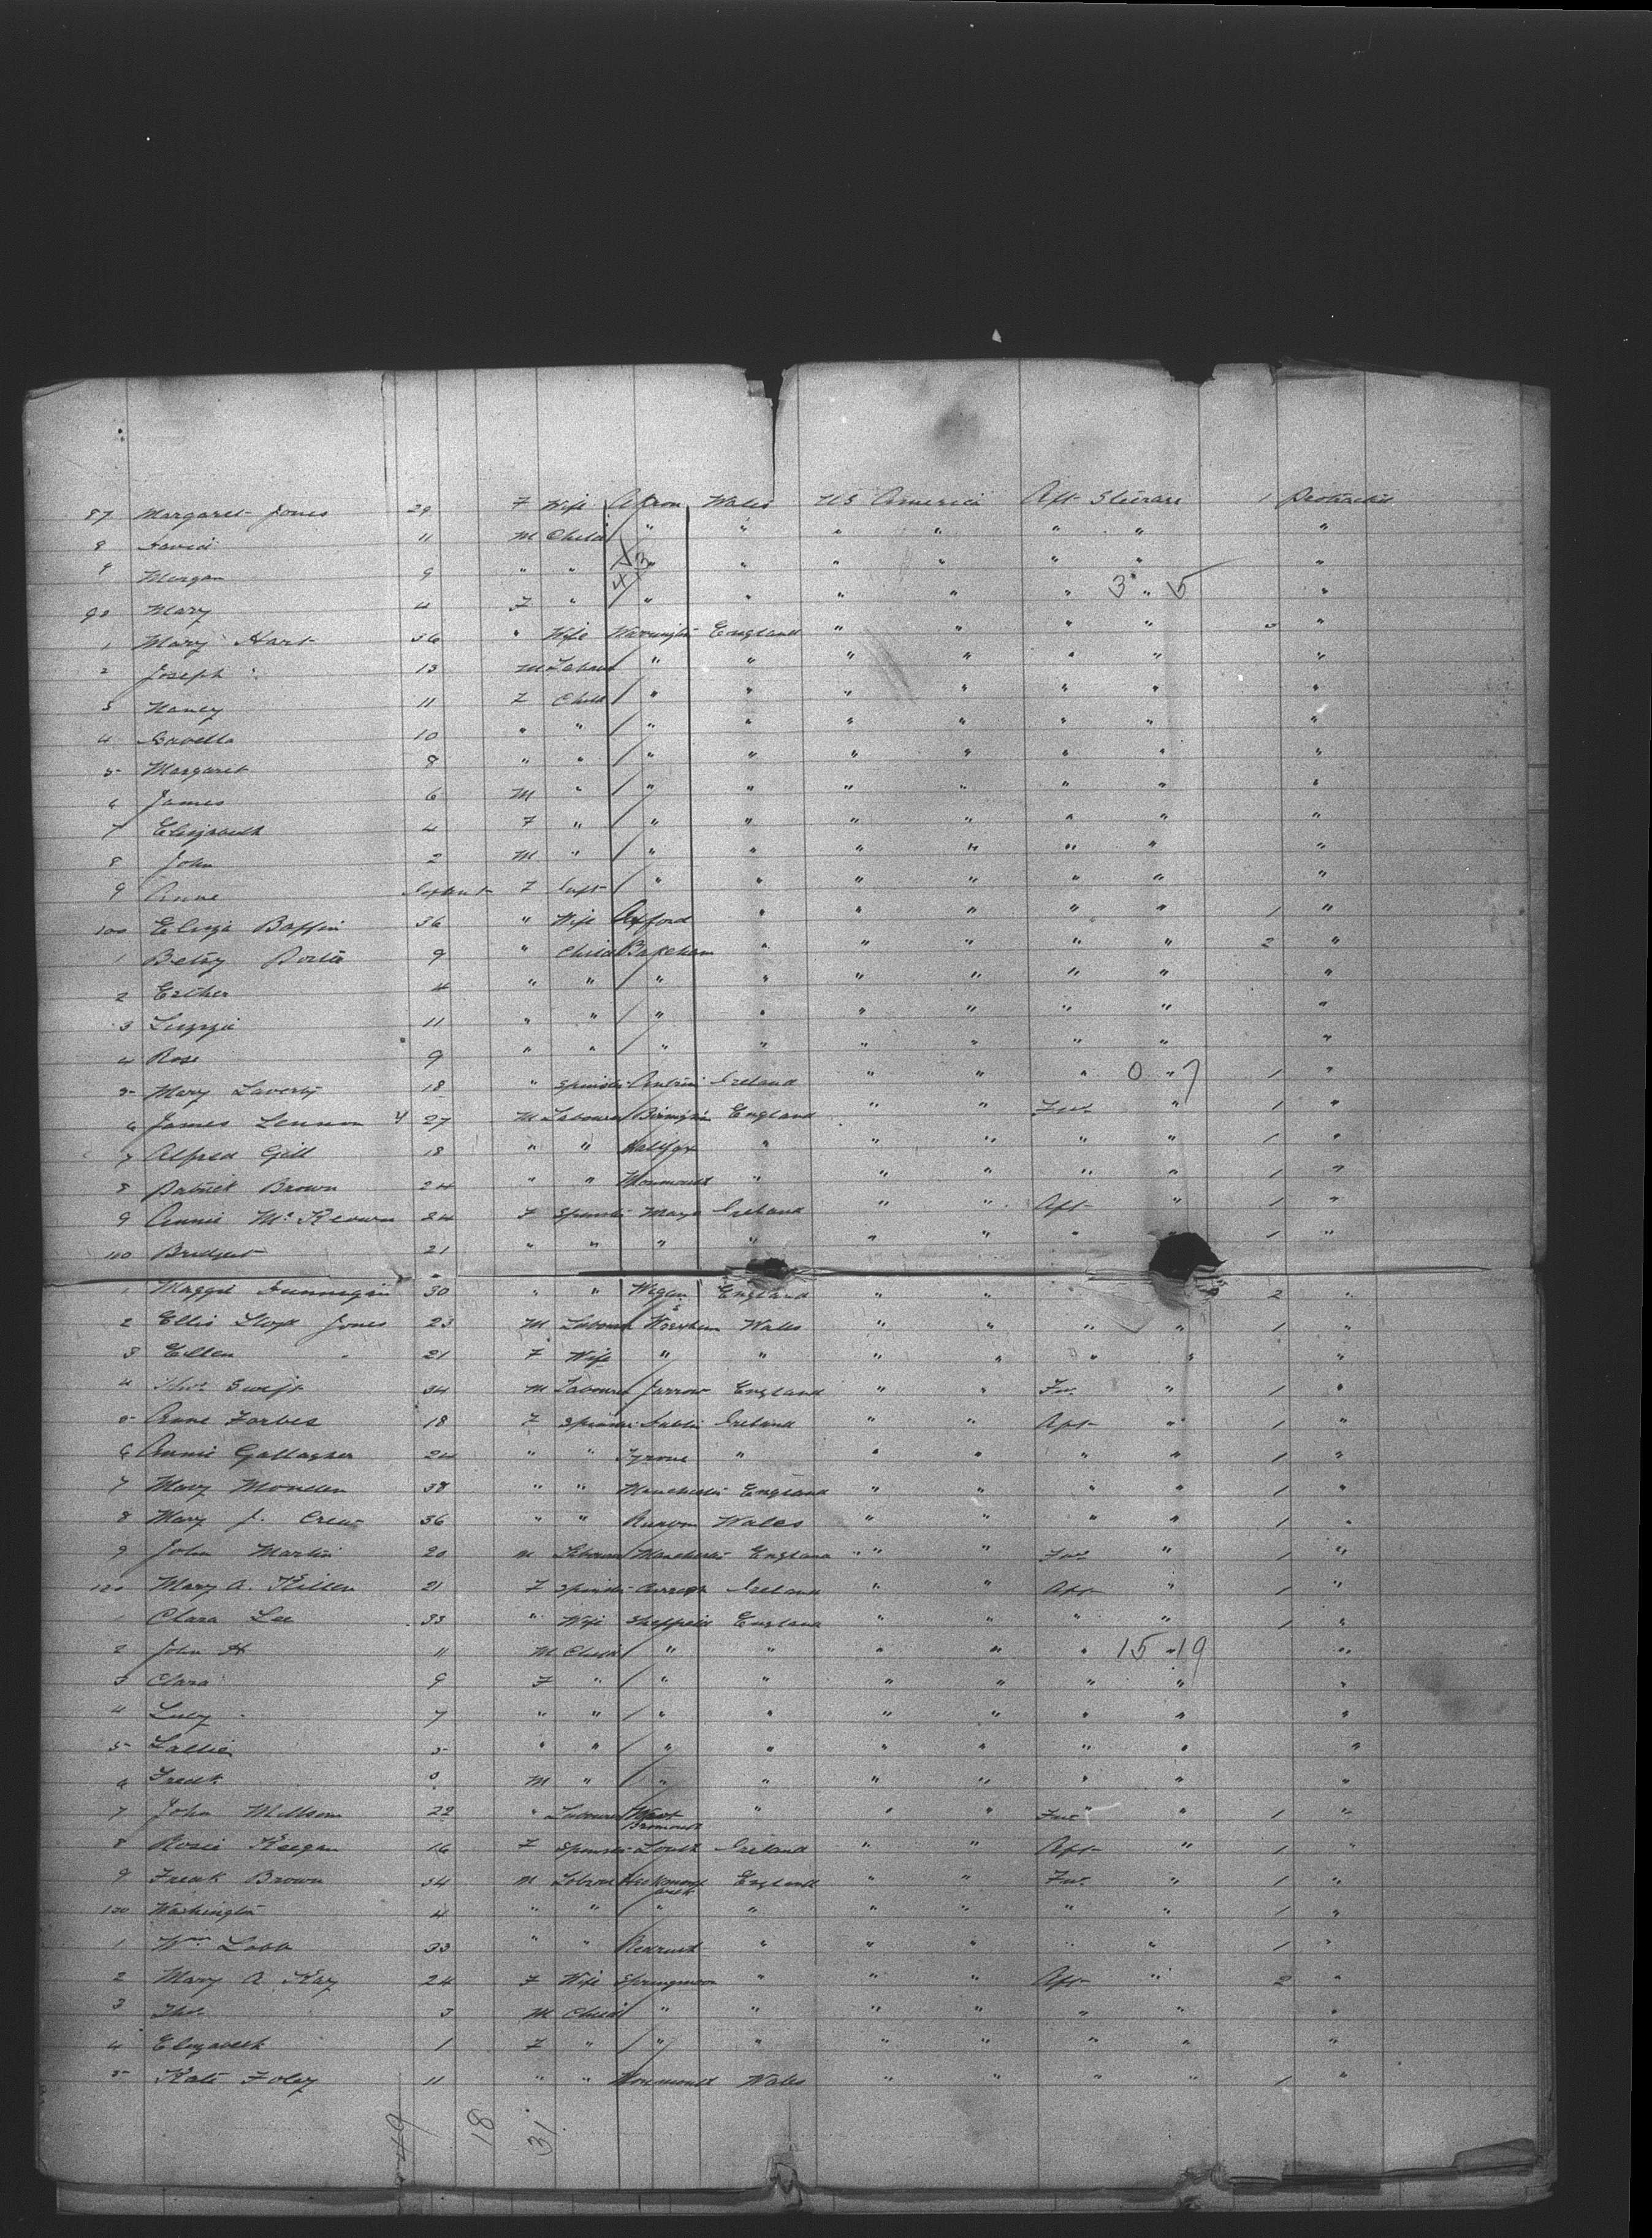 87 Margaret Jones 29 F Wife Wales US America Aft Steerage 1 Protracted
8 David 11 M Child " " " " " " "
9 Morgan 9 " " " " " " " " "
90 Mary 4 F " " " " " " 3 " 5 "
1 Mary Hart 36 " Wife Warrington England " " " " "
2 Joseph " 13 M Labour " " " " " " "
3 Nancy 11 F Child " " " " " " "
4 Isabella 10 " " " " " " " " "
5 Margaret 8 " " " " " " " " "
6 James 6 M " " " " " " " "
7 Elizabeth 4 F " " " " " " " "
8 John 2 M " " " " " " " "
9 Anne Infant F Inft " " " " " " "
100 Eliza 36 " Wife Oxford " " " " " 1 "
1 Betsy 9 " Child " " " " " 2 "
2 Esther 4 " " " " " " " " "
3 Lizzie 11 " " " " " " " " "
4 Rose 9 " " " " " " " " "
5 Mary Laverty 18 " Spinster Antrim Ireland " " " 0 " 7 1 "
6 James Lennon 27 M Labourer England " " Fwd " 1 "
7 Alfred Gill 18 " " Halifax " " " " " 1 "
8 Patrick Brown 24 " " Monmouth " " " " " 1 "
9 Annie McKeown 24 F Spinster Mayo Ireland " " Aft " 1 "
110 Bridget 21 " " " " " " " " 1 "
1 Maggie Finnegan 30 " " Wigan England " " 2 "
2 Ellis Lloyd Jones 23 M Labour Wrexham Wales " " " " 1 "
3 Ellen " 21 F Wife " " " " " " "
4 Thos Swift 34 M Labourer Jarrow England " " Fw " 1 "
5 Anne Forbes 18 F Spinster Dublin Ireland " " Aft " 1 "
6 Annie Gallagher 24 " " Tyrone " " " " " 1 "
7 Mary 38 " " Manchester England " " " " 1 "
8 Mary J. Crew 36 " " Wales " " " " 1 "
9 John Martin 20 M Labour Manchester England " " Fwd " 1 "
120 Mary A. Killen 21 F Spinster Ireland " " Aft " 1 "
1 Clara Lee 33 " Wife Sheffield England " " " " 1 "
2 John H 11 M Child " " " " " 15 " 19 "
3 Clara 9 F " " " " " " " "
4 Lucy 7 " " " " " " " " "
5 Lallie 5 " " " " " " " " "
6 Fredk M " " " " " " " "
7 John Millson 22 " Labourer West Bromwich " " " Fwd " 1 "
8 Rosie Keegan 16 F Spinster Louth Ireland " " Aft " 1 "
9 Fredk Brown 34 M Labour England " " Fwd " 1 "
130 Washington 4 " " " " " " " " 1 "
1 Wm 33 " " " " " " " 1 "
2 Mary A Kay 24 F Wife " " " Aft " 2 "
3 Thos 3 M Child " " " " " " "
4 Elizabeth 1 F " " " " " " " "
5 Kate Foley 11 " " Monmouth Wales " " " " 1 "
49 18 31